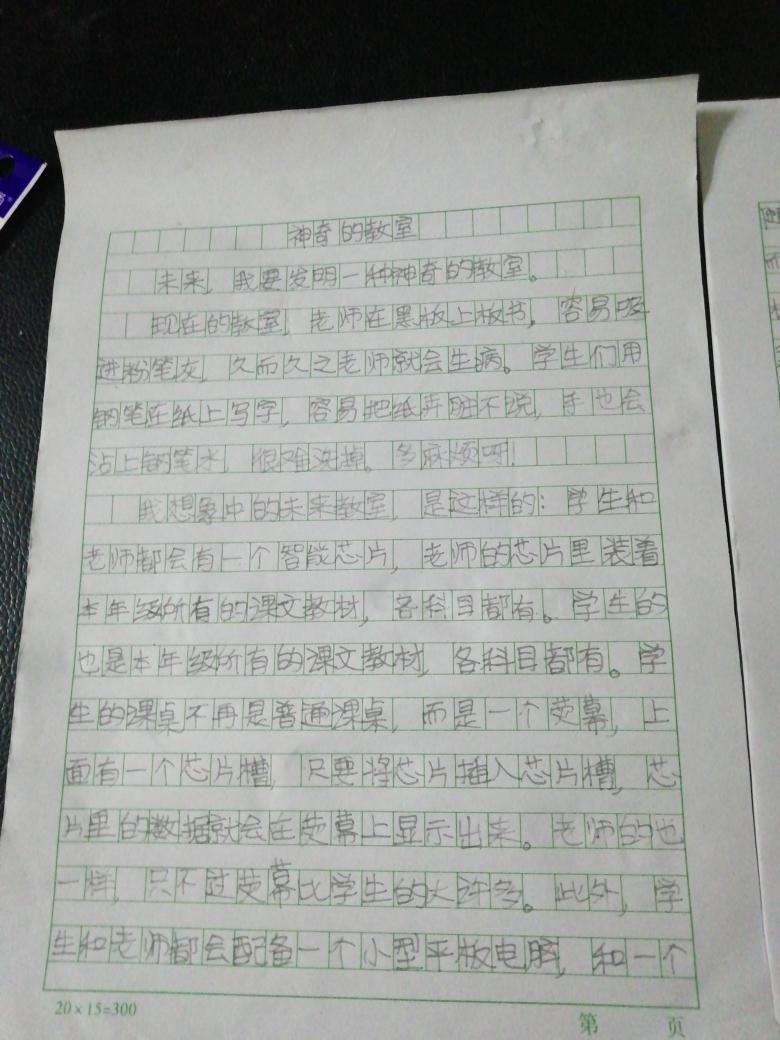 神奇的教室
未来，我要发明一种神奇的教室。
现在的教室，老师在黑版上板书，容易吸
进粉笔灰，久而久之老师就会生病。学生们用
钢笔在纸上写字，容易把纸弄脏不说，手也会
沾上钢笔水，很难洗掉。多麻烦呀！
我想象中的未来教室，是这样的：学生和
老师都会有一个智能芯片，老师的芯片里装着
本年级所有的课文教材，各科目都有。学生的
也是本年级所有的课文教材，各科目都有。学
生的课桌不再是普通课桌，而是一个荧幕，上
面有一个芯片槽，只要将芯片插入芯片槽，芯
片里的数据就会在荧幕上显示出来。老师的也
一样，只不过荧幕比学生的大许多。此外，学
生和老师都会配备一个小型平板电脑，和一个
20×15=300
第 页